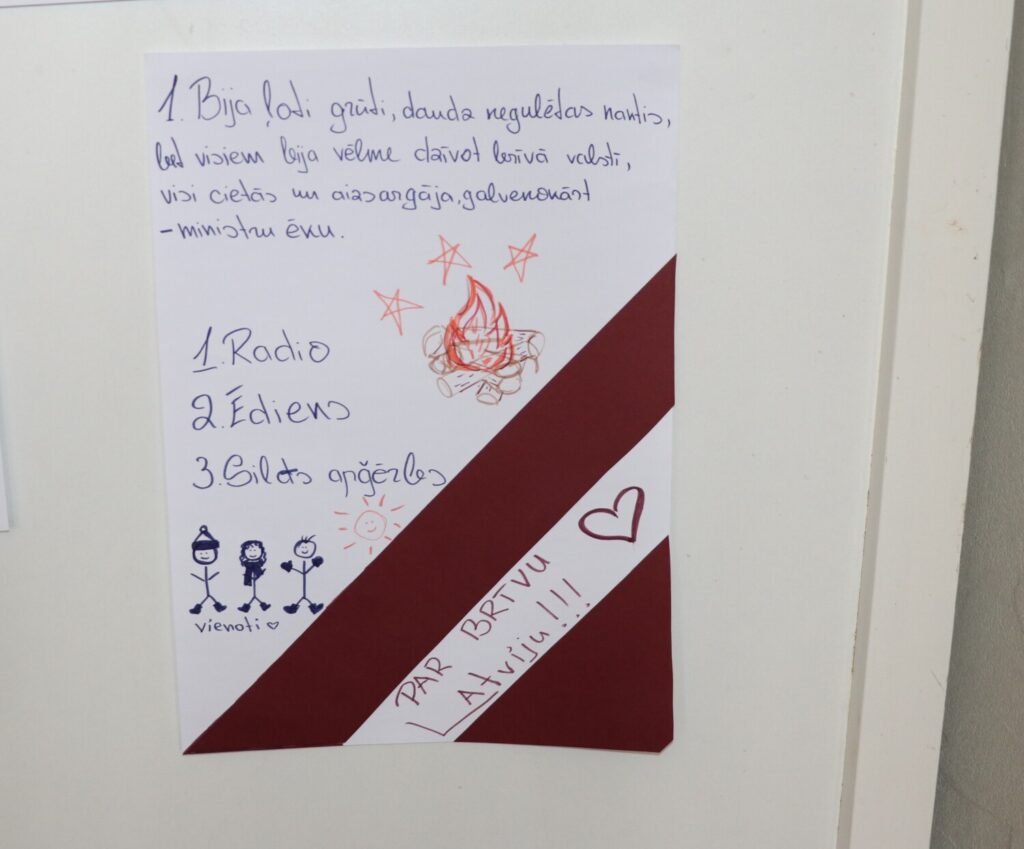 1. Bija ļoti grūti, daudz negulētas nantis,
bet visiem bija vēlme dzīvot brīvā valstī,
visi cietās un aizsargāja, galvenokārt
- ministru ēku.
1. Radio
2. Ēdiens
3. Silts apģērbs
vienoti
PAR BRĪVU
Latviju!!!